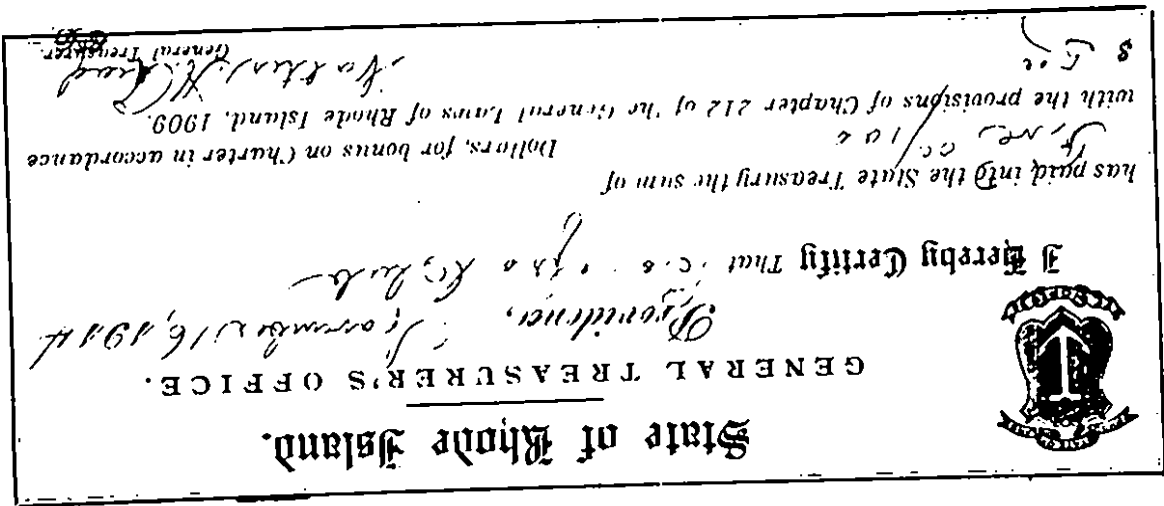 State of Rhode Island.
GENERAL TREASURER'S OFFICE.
Providence, November 16, 1914
I Hereby Certify That
has paid into the State Treasury the sum of
Five 00/100 Dollars, for bonus on Charter in accordance
with the provisions of Chapter 212 of the General Laws of Rhode Island, 1909.
$ 5.00 Walter A. Read
General Treasurer.